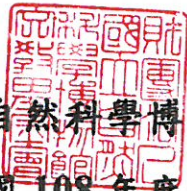 財團法人
國立自然
科學博物館
文教基金會
自然科學博
108 年度